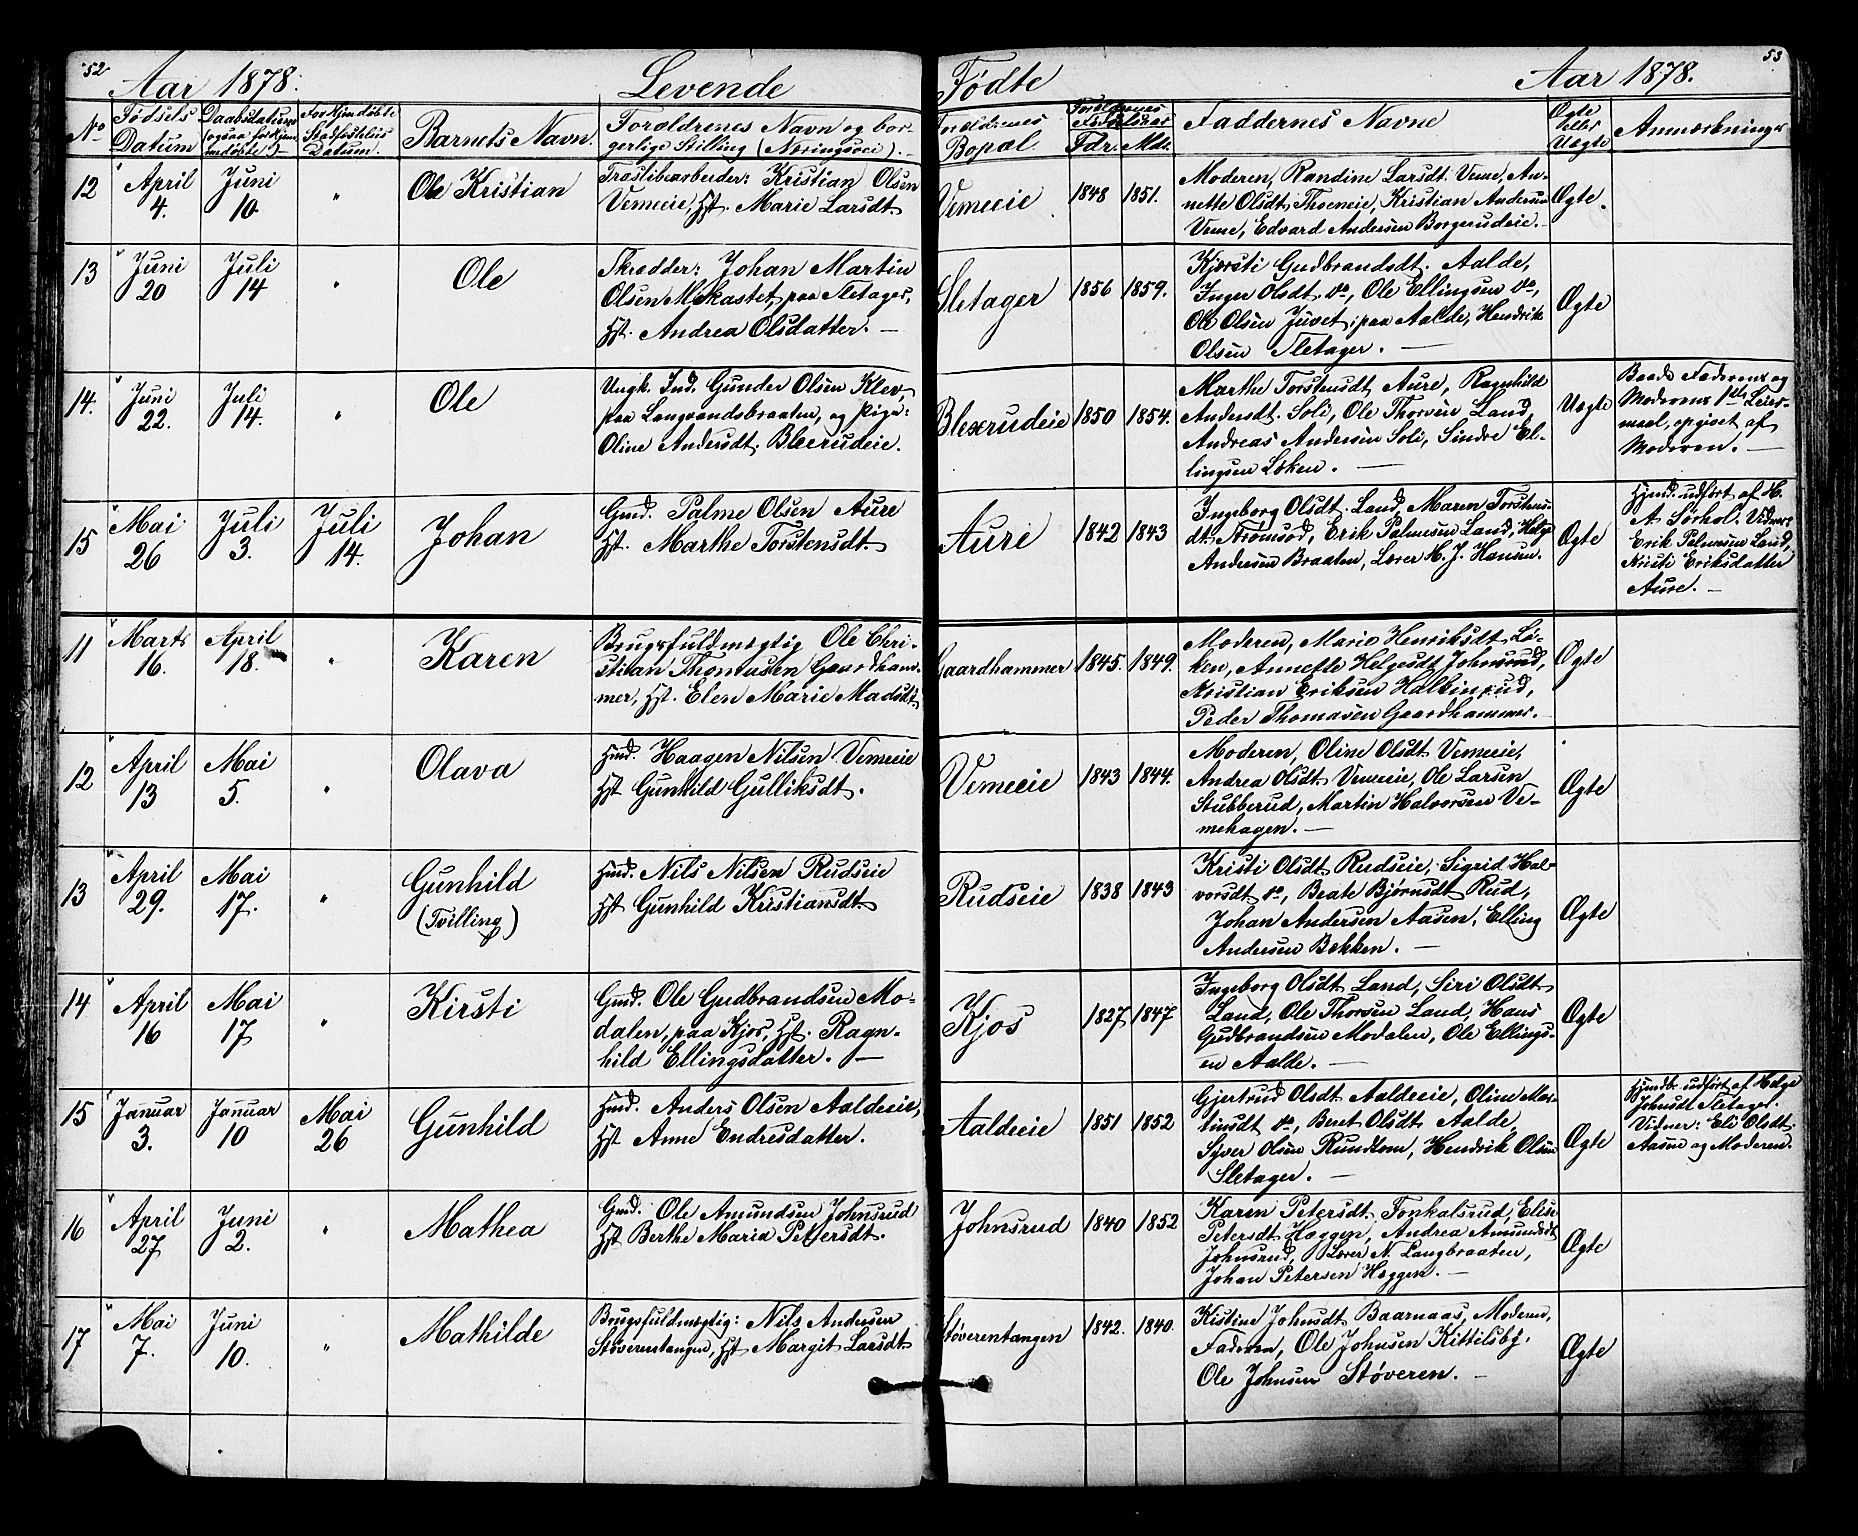 52
Aar 1878.
Levende
Fødte
Aar 1878.
53
No
Fødsels Datum
Daabsdatum (ogsaa for hjemmedøbte)
For Hjemdøbte Stadfæstelses Datum.
Barnets Navn.
Forældrenes Navn og bor-
gerlige Stilling (Næringsvei).
Forældrenes Bopæl
Forældrenes Fødselsaar
Fdr. Mdr.
Faddernes Navne
Ægte eller Uægte
Anmærkninger
12
April 4.
Juni 10.
"
Ole Kristian
Træsliberarbeider: Kristian Olsen
Vemeeie, Hst. Marie Larsdt.
Vemeeie
1848
1851.
Moderen, Randine Larsdt. Veme, An-
nette Olsdt. Thoeneie, Kristian Andersen
Veme, Edvard Andersen Borgerudeie. —
Ægte.
13
Juni 20
Juli 14
"
Ole
Skrædder: Johan Martin
Olsen Mskastet, paa Sletager,
Hst. Andrea Olsdatter. —
Sletager
1856
1859.
Kjersti Gudbrandsdt. Aalde,
Inger Olsdt. do, Ole Ellingsen do,
Ole Olsen Juvet, paa Aalde, Hendrik
Olsen Sletager. —
Ægte
14.
Juni 22.
Juli 14.
"
Ole
Ungk. Ind. Gunder Olsen Klev,
paa Langrandsbraaten, og Pige:
Oline Andersdt. Blexrudeie.
Blexrudeie
1850
1854.
Marthe Torstensdt. Aure, Ragnhild
Andersdt. Soli, Ole Thorsen Land,
Andreas Andersen Soli, Sindre El-
lingsen Løken. —
Uægte
Baade Faderens og
Moderens 1ste Leier-
maal, opgivet af
Moderen. —
15
Mai 26
Juli 3.
Juli 14.
Johan
Gmd. Palme Olsen Aure
Hst. Marthe Torstensdt.
Aure
1842
1843
Ingeborg Olsdt. Land, Maren Torstens-
dt. Strømsod, Erik Palmesen Land, Helge
Andersen Braaten, Lærer H. J. Hansen.
Ægte
Hjemd. udført af H.
A. Sørhol. Vidner:
Erik Palmesen Land,
Kristi Eriksdatter
Aure. —
11
Marts 16.
April 18.
"
Karen
Brugsfuldmægtig Ole Chri-
stian Thomasen Gaardham-
mer, Hst. Elen Marie Madsdt.
Gaardhammer
1845.
1849.
Moderen, Marie Henriksdt. Lø-
ken, Annette Helgesdt. Johnsrud,
Kristian Eriksen Halkinrud,
Peder Thomasen Gaardhammer.
Ægte
12
April 13
Mai 5.
"
Olava
Hmd. Haagen Nilsen Vemeeie
Hst. Gunhild Gulliksdt.
Vemeeie
1843
1844.
Moderen, Oline Olsdt. Vemeeie,
Andrea Olsdt. Vemeeie, Ole Larsen
Stubberud, Martin Halvorsen Ve-
mehagen. —
Ægte
13
April 29.
Mai 17.
"
Gunhild
(Tvilling)
Hmd. Nils Nilsen Rudseie
Hst. Gunhild Kristiansdt.
Rudseie
1838
1843
Kristi Olsdt. Rudseie, Sigrid Hal-
vorsdt. do, Beate Bjørnsdt. Rud,
Johan Andersen Aasen, Elling
Andersen Bakken. —
Ægte
14
April 16
Mai 17
"
Kirsti
Gmd. Ole Gudbrandsen Mo-
dalen, paa Kjos, Hst. Ragn-
hild Ellingsdatter. —
Kjos
1827
1847
Ingeborg Olsdt. Land, Siri Olsdt.
Land, Ole Thorsen Land, Hans
Gudbrandsen Modalen, Ole Ellings-
en Aalde. —
Ægte
15
Januar 3.
Januar 10
Mai 26
Gunhild
Hmd. Anders Olsen Aaldeeie,
Hst. Anne Endresdatter.
Aaldeeie
1851
1852
Gjertrud Olsdt. Aaldeeie, Oline Mar-
tinsdt. do, Beret Olsdt. Aalde,
Syver Olsen Rundtom, Hendrik Olsen
Sletager. —
Ægte
Hjemdb. udført af Helge
Johnsdt. Sletager.
Vidner: Eli Olsdt.
Aasen og Moderen.
16
April 27
Juni 2.
"
Mathea
Gmd. Ole Amundsen Johnsrud
Hst. Berthe Maria Petersdt.
Johnsrud
1840
1852
Karen Petersdt. Fonkalsrud, Elise
Petersdt. Haggen, Andrea Amundsdt.
Johnsrud, Lærer N. Langbraaten,
Johan Petersen Haggen. —
Ægte
17
Mai 7.
Juni 10.
"
Mathilde
Brugsfuldmægtig: Nils Andersen
Støverentangen, Hst. Margit Larsdt.
Støverentangen
1842.
1840.
Kistine Johnsdt. Baarnaas, Moderen,
Faderen, Ole Johnsen Kittilsby,
Ole Johnsen Støveren. —
Ægte